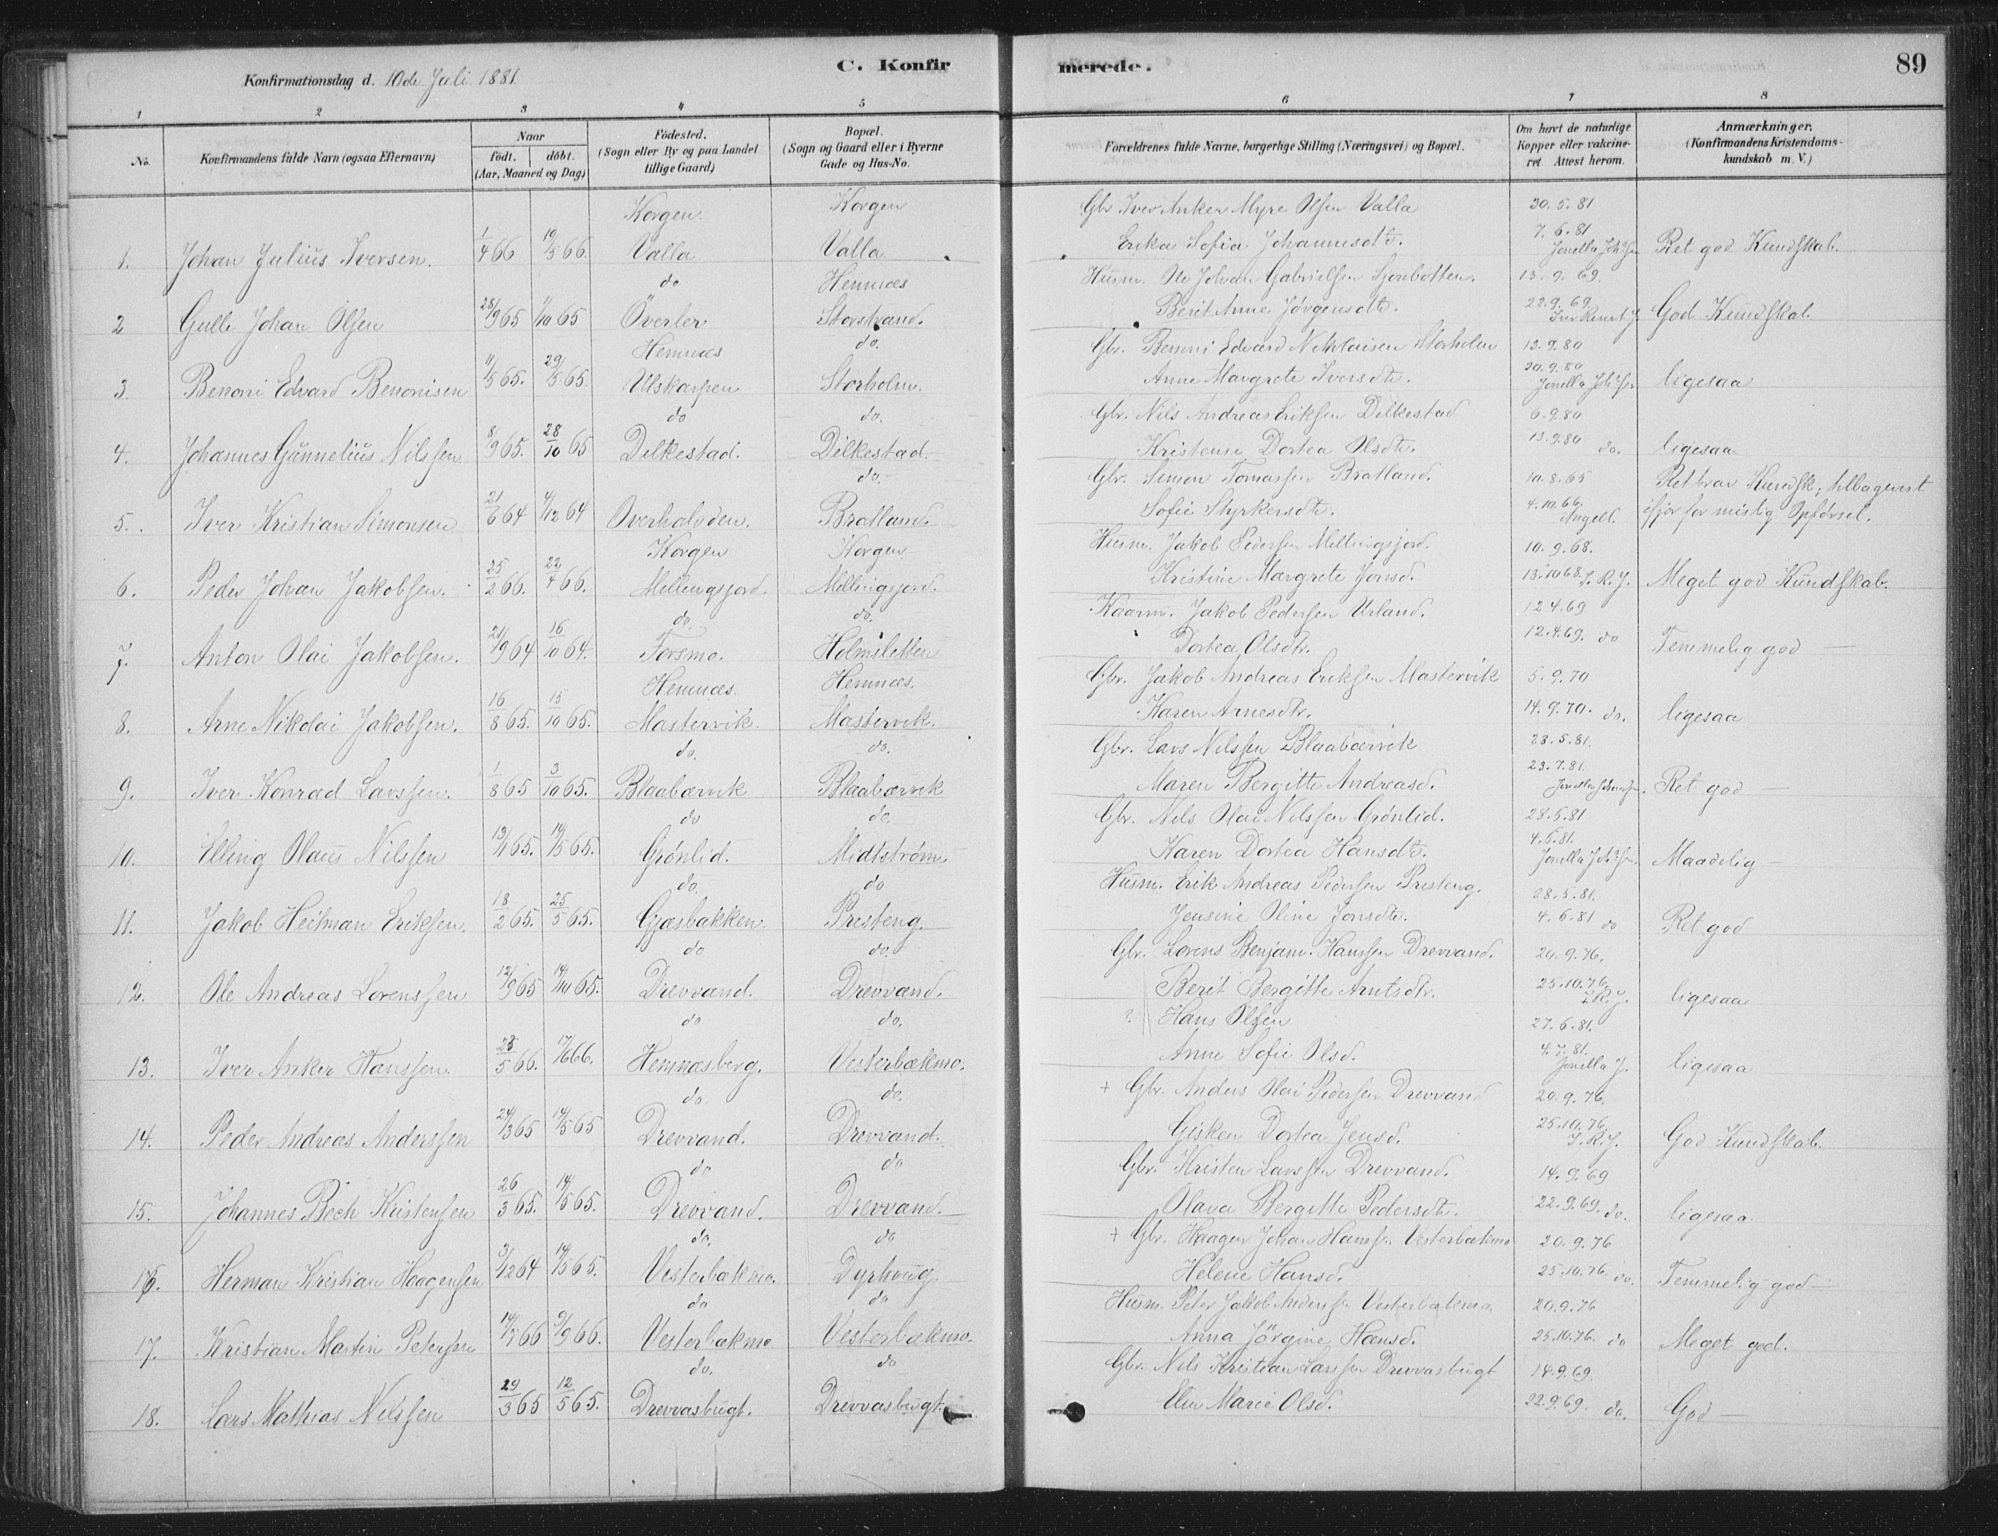 Konfirmationsdag d. 10de Juli 1881.
C. Konfirmerede.
89
1 2 3 4 5 6 7 8
No.
Konfirmandens fulde Navn (ogsaa Efternavn)
Naar
födt. döbt.
(Aar, Maaned og Dag)
Födested.
(Sogn eller By og paa Landet
tillige Gaard)
Bopæl.
(Sogn og Gaard eller i Byerne
Gade og Hus-No.
Forældrenes fulde Navne, borgerlige Stilling (Næringsvei) og Bopæl.
Om havt de naturlige
Kopper eller vakcine-
ret Attest herom.
Anmærkninger.
(Konfirmandens Kristendoms-
kundskab m. V.)
Korgen Korgen Gbr. Iver Anker Myre Olsen Valla 30.5.81
1. Johan Julius Iversen. 1/4 66 19/5 66. Valla Valla Erika Sofia Johannesdtr. 7.6.81 Ret god Kundskab.
do Hemnæs Husm. Ole Johan Gabrielsen Sjonbotten. 13.9.69.
2 Gulle Johan Olsen 28/9 65 1/10 65 Överler Storstrand. Berit Anne Jørgensdtr. 22.9.69. God Kundskab
Hemnæs do. Gbr. Benoni Edvard Nikolaisen Storholm 13.9.80
3. Benoni Edvard Benonisen 11/5 65. 29/5 65. Ulskarpen Storholm. Anne Margrete Iversdtr. 20.9.80 ligesaa
do do. Gbr. Nils Andreas Eriksen Dilkestad 6.9.80
4. Johannes Gunnelius Nilssen 8/9 65. 28/10 65 Dilkestad. Dilkestad. Kristense Dortea Olsdtr. 13.9.80 do. ligesaa
do. Gbr. Simon Tomassen Bratland. 10.8.65 Ret brav Kundsk; tilbagevist
5. Iver Kristian Simonsen 21/6 64 4/12 64 Overhalvden. Bratland. Sofie Styrkersdtr. 4.10.66. Angell. ifjor for mislig Opførsel.
Korgen Korgen Husm. Jakob Pedersen Millingsjord. 10.9.68.
6. Peder Johan Jakobsen. 25/2 66. 22/4 66. Millingsjord. Millingsjord. Kristine Margrete Jonsd. 13.10.68. I.R.J. Meget god Kundskab.
do. do. Kaarm. Jakob Pedersen Urland. 12.4.69
7. Anton Olai Jakobsen. 21/9 64 16/10 64. Forsmo. Holmsletten Dortea Olsdtr. 12.4.69. do Temmelig god —
Hemnæs. Hemnæs. Gbr. Jakob Andreas Eriksen Mastervik 5.9.70
8. Arne Nikolai Jakobsen. 16/8 65. 15/10 65. Mastervik. Mastervik. Karen Arnesdtr. 14.9.70. do. ligesaa
do. do. Gbr. Lars Nilssen Blaabærvik 28.5.81.
9. Iver Konrad Larssen. 1/8 65 3/10 65. Blaabærvik Blaabærvik Maren Bergitte Andreasd. 23.7.81. Ret god —
do do. Gbr. Nils Olai Nilssen Grönlid. 28.5.81
10. Elling Olaus Nilssen 13/4 65. 14/5 65. Grönlid. Midtstrøm. Karen Dortea Hansdtr. 4.6.81. Maadelig —
do. do Husm. Erik Andreas Pedersen Presteng. 28.5.81.
11. Jakob Heitman Eriksen. 18/2 65. 25/5 65. Gjæsbakken. Presteng. Jensine Oline Jonsdtr. 4.6.81 do Ret god
do do. Gbr. Lorens Benjam. Hanssen Drevvand. 20.9.76.
12. Ole Andreas Lorenssen 12/9 65 14/10 65. Drevvand. Drevvand. Berit Bergitte Arntsdtr. 25.10.76. I.R.J. ligesaa
do do. ? Hans Olsen 27.6.81.
13. Iver Anker Hanssen. 28/5 66. 17/6 66. Hemnæsberg. Vesterbækmo. Anne Sofie Olsd. 4.7.81. Jonella J. ligesaa
do. do. + Gbr. Anders Olai Pedersen Drevvand 20.9.76.
14. Peder Andreas Anderssen 24/3 65 14/5 65 Drevvand. Drevvand. Gisken Dortea Jensd. 25.10.76. I.R.J. God Kundskab.
do do Gbr. Kristen Larssen Drevvand. 14.9.69
15. Johannes Bech Kristensen 26/3 65. 14/5 65. Drevvand. Drevvand. Olava Bergitte Pedersdtr. 22.9.69. do. ligesaa.
do. do + Gbr. Haagen Johan Hanssen Vesterbækmo 20.9.76
16. Herman Kristian Haagensen 3/12 64 14/5 65. Vesterbækmo. Dyrhaug. Helene Hansd. 25.10.76. do. Temmelig god —
do do Husm. Peter Jakob Anderssen Vesterbækmo 20.9.76
17. Kristian Martin Petersen 14/7 66 9/9 66. Vesterbækmo Vesterbækmo. Anna Jörgine Hansd. 25.10.76. do Meget god.
do. do Gbr. Nils Kristian Larssen Drevvasbugt 14.9.69.
18. Lars Mathias Nilssen 29/3 65 12/5 65. Drevvasbugt. Drevvasbugt. Elen Marie Olsd. 22.9.69. do. God —